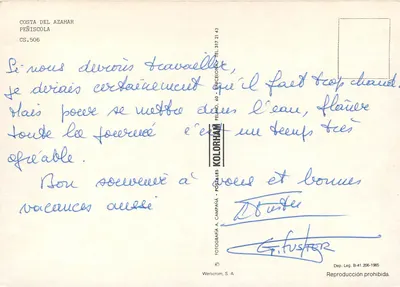 COSTA DEL AZAHAR
PEÑISCOLA
CS.506
Si nous devions travailler,
je dirais certainement qu'il fait trop chaud.
Mais pour se mettre dans l'eau, flâner
toute la journée c'est un temps très
agréable.
Bon souvenir à vous et bonnes
vacances aussi
G. Fuster
FOTOGRAFIA A. CAMPAÑA - POSTALES KOLORHAM
Dep. Leg. B-41.206-1980
Reproducción prohibida